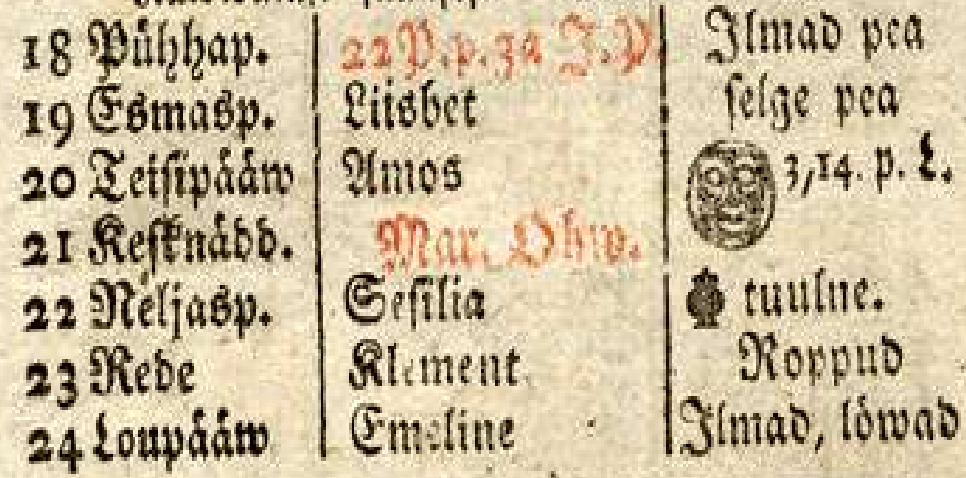 18 Pühhap. 22 P. p. 3a J. P. Ilmad pea
19 Esmasp. Liisbet selge pea
20 Teisipääw Amos 3,14. p. L.
21 Kesknädd. Mar. Ohw.
22 Neljasp. Sesilia tuulne.
23 Rede Klement Roppud
24 Loupääw Emeline Ilmad, löwad